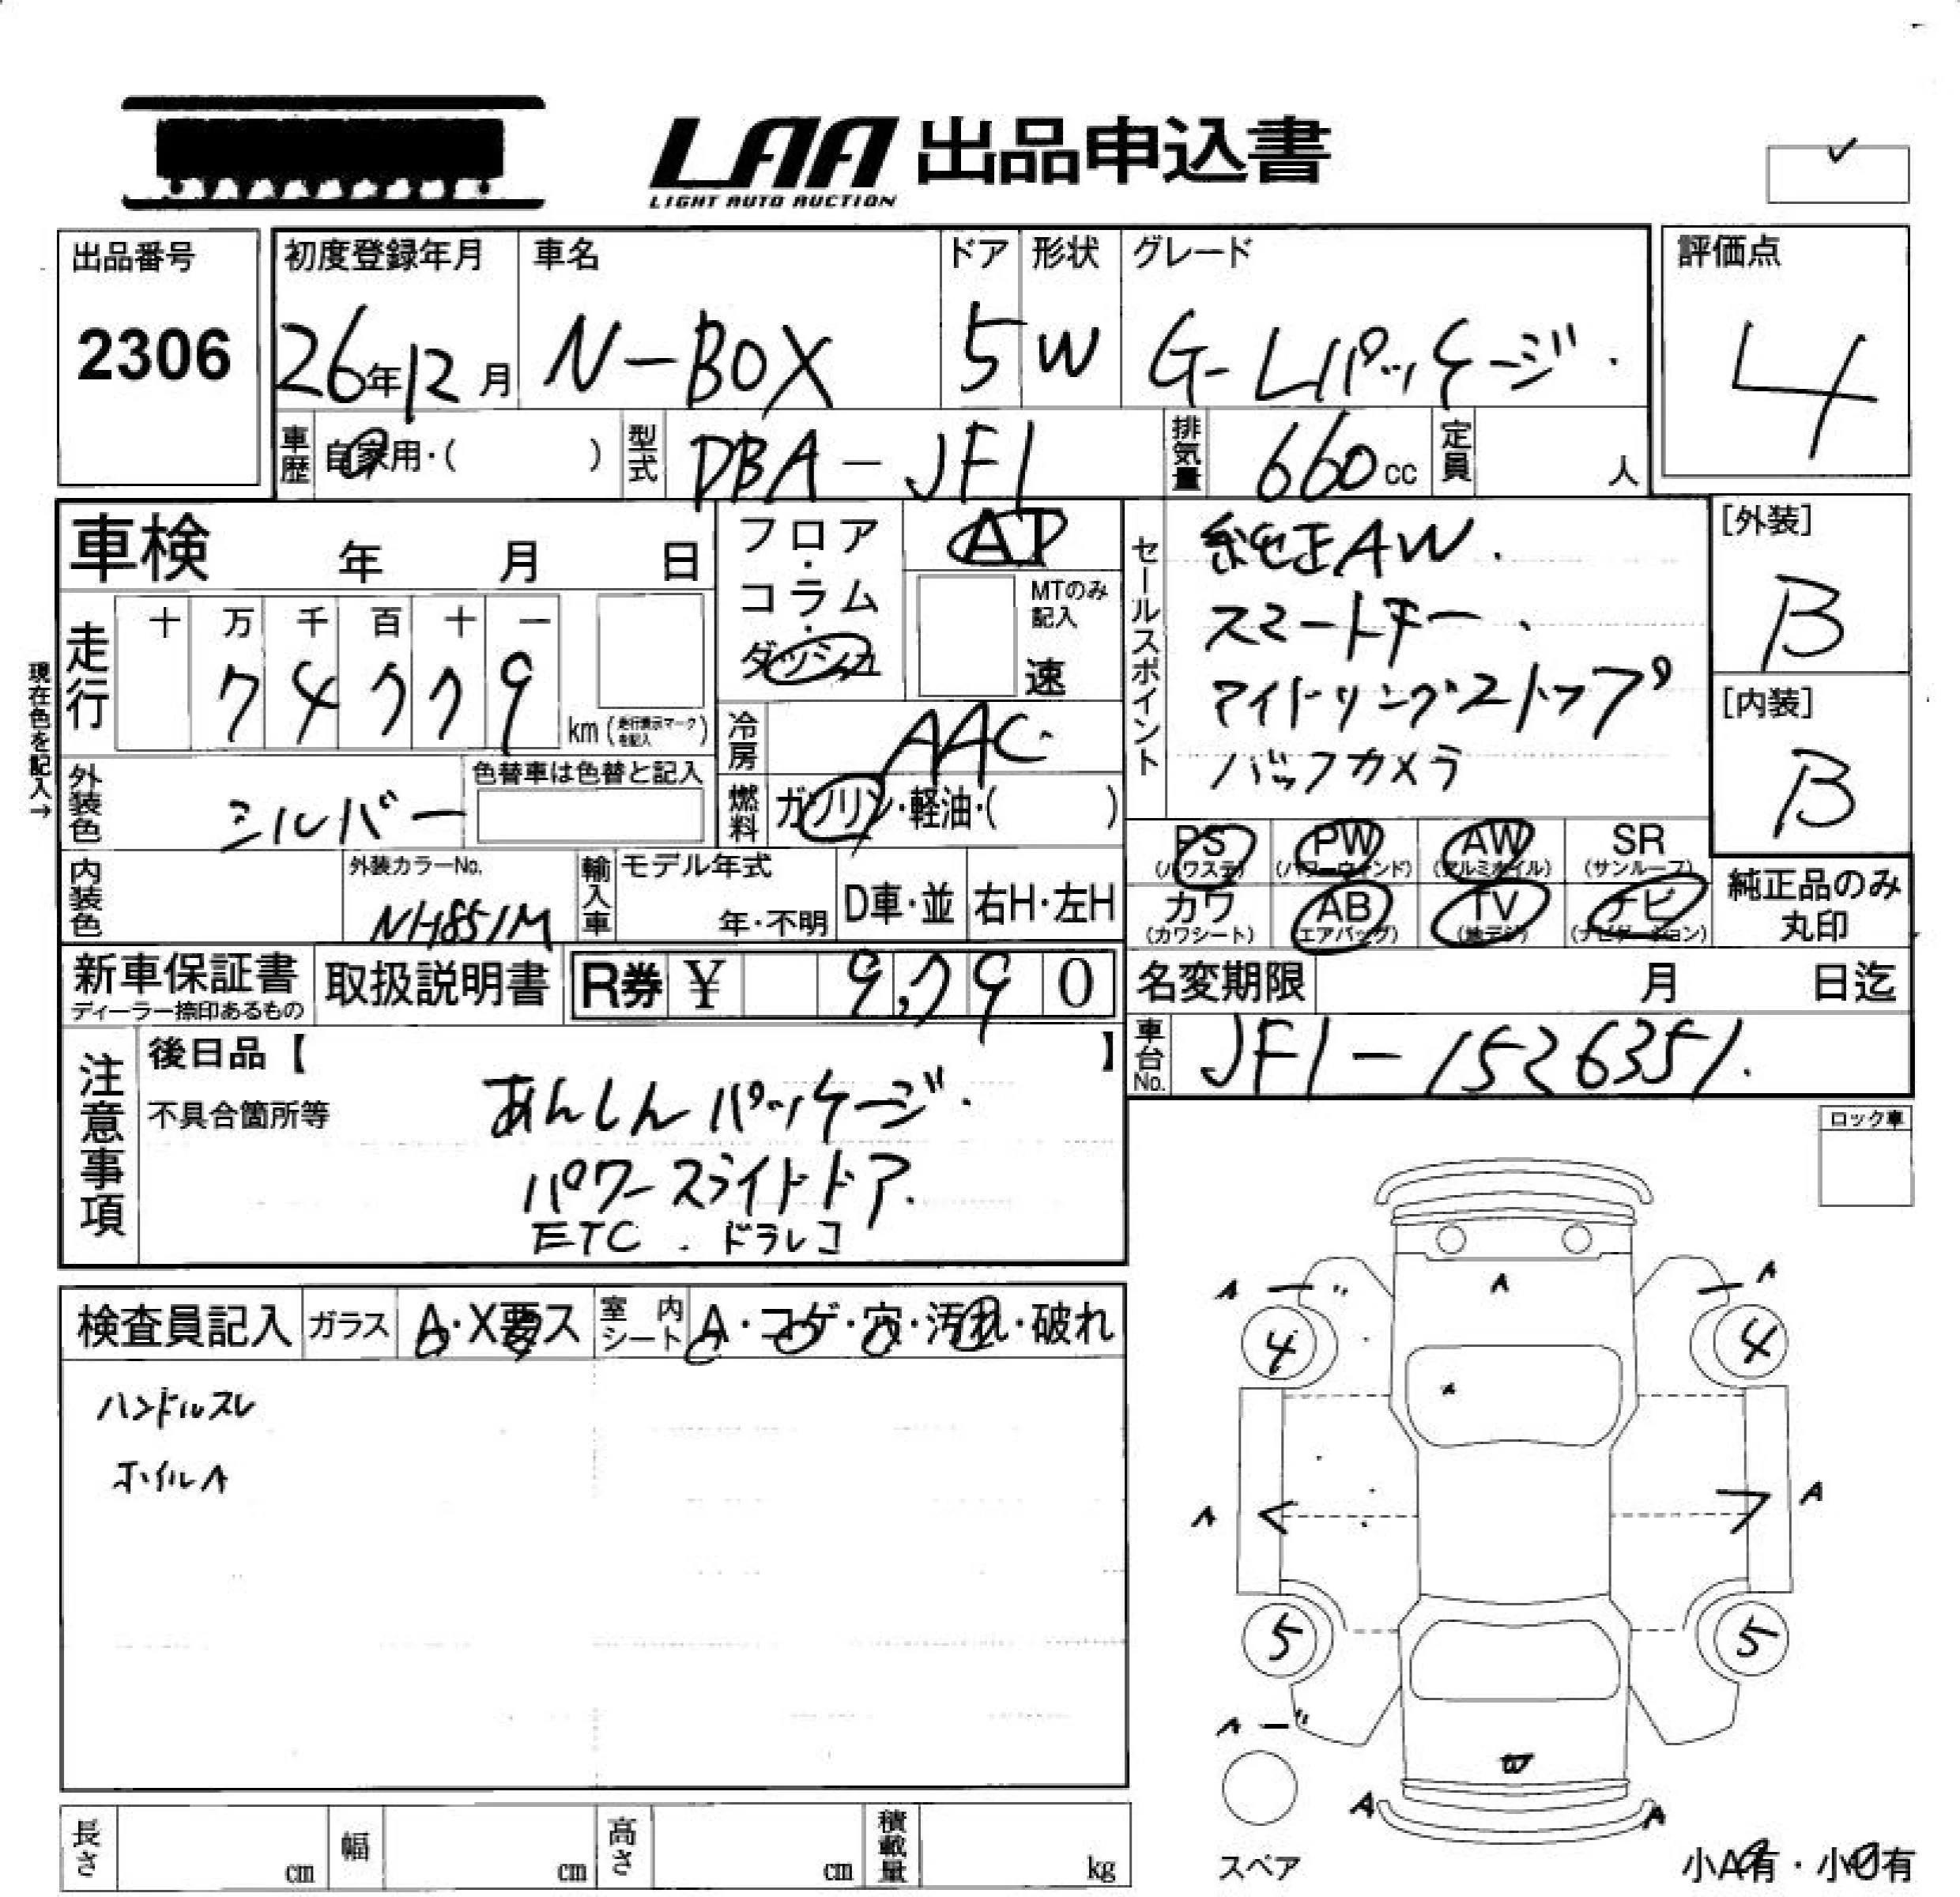 LAA 出品申込書
LIGHT AUTO AUCTION
出品番号
2306
初度登録年月
26年12月
車名
N-BOX
ドア
5
形状
W
グレード
G-Lパッケージ.
評価点
4
車歴
自家用・( )
型式
DBA-JF1
排気量
660cc
定員
人
車検 年 月 日
フロア・コラム・ダッシュ
AT
MTのみ記入
速
セールスポイント
純正AW.
スマートキー.
アイドリングストップ
バックカメラ
[外装]
B
[内装]
B
現在色を記入→
走行
十 万 千 百 十 一
7 4 7 7 9
km (走行表示マークを記入)
冷房
AAC.
外装色
シルバー
色替車は色替と記入
燃料
ガソリン・軽油・( )
内装色
外装カラーNo.
NH851M
輸入車
モデル年式
年・不明
D車・並
右H・左H
PS
(パワステ)
PW
(パワーウィンド)
AW
(アルミホイル)
SR
(サンルーフ)
カワ
(カワシート)
AB
(エアバッグ)
TV
(地デジ)
ナビ
(ナビゲーション)
純正品のみ
丸印
新車保証書
ディーラー捺印あるもの
取扱説明書
R券 ¥ 9,790
名変期限 月 日迄
車台No.
JF1-1526351.
注意事項
後日品【 】
不具合箇所等
あんしんパッケージ.
パワースライドドア.
ETC . ドラレコ
ロック車
検査員記入
ガラス
A・X要ス
室内シート
A・コゲ・穴・汚れ・破れ
ハンドルスレ
ホイルA
A
A
A
4
4
A
A
5
5
A
W
A
A
スペア
小A有・小U有
長さ cm
幅 cm
高さ cm
積載量 kg